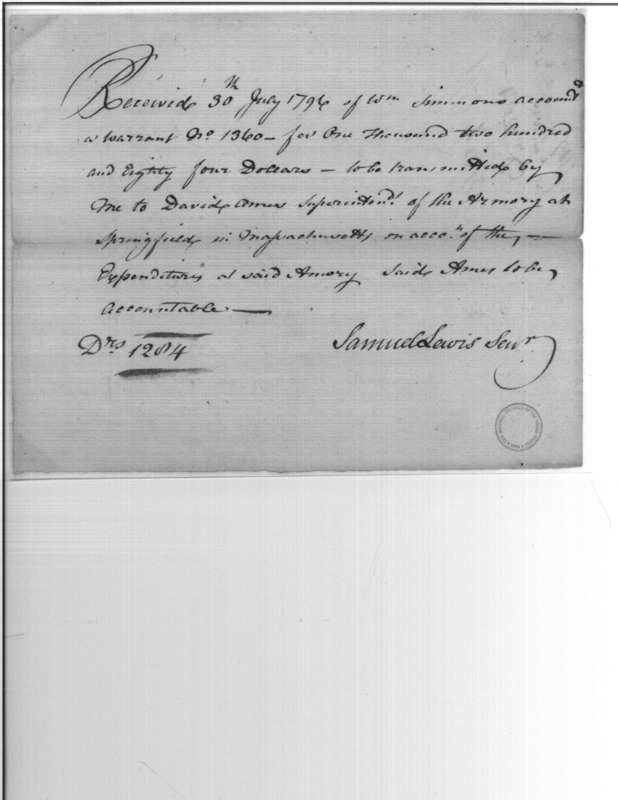 Received 30th July 1796 of Wm Simmons account
a warrant No 1360 – for One thousand two hundred
and Eighty four Dollars – to be transmitted by
me to David Ames Superintendt of the Armory at
Springfield in Massachusetts on acct of the, —
Expenditures at said Amory Said Ames to be,
accountable —
Drs 1284
Samuel Lewis Senr